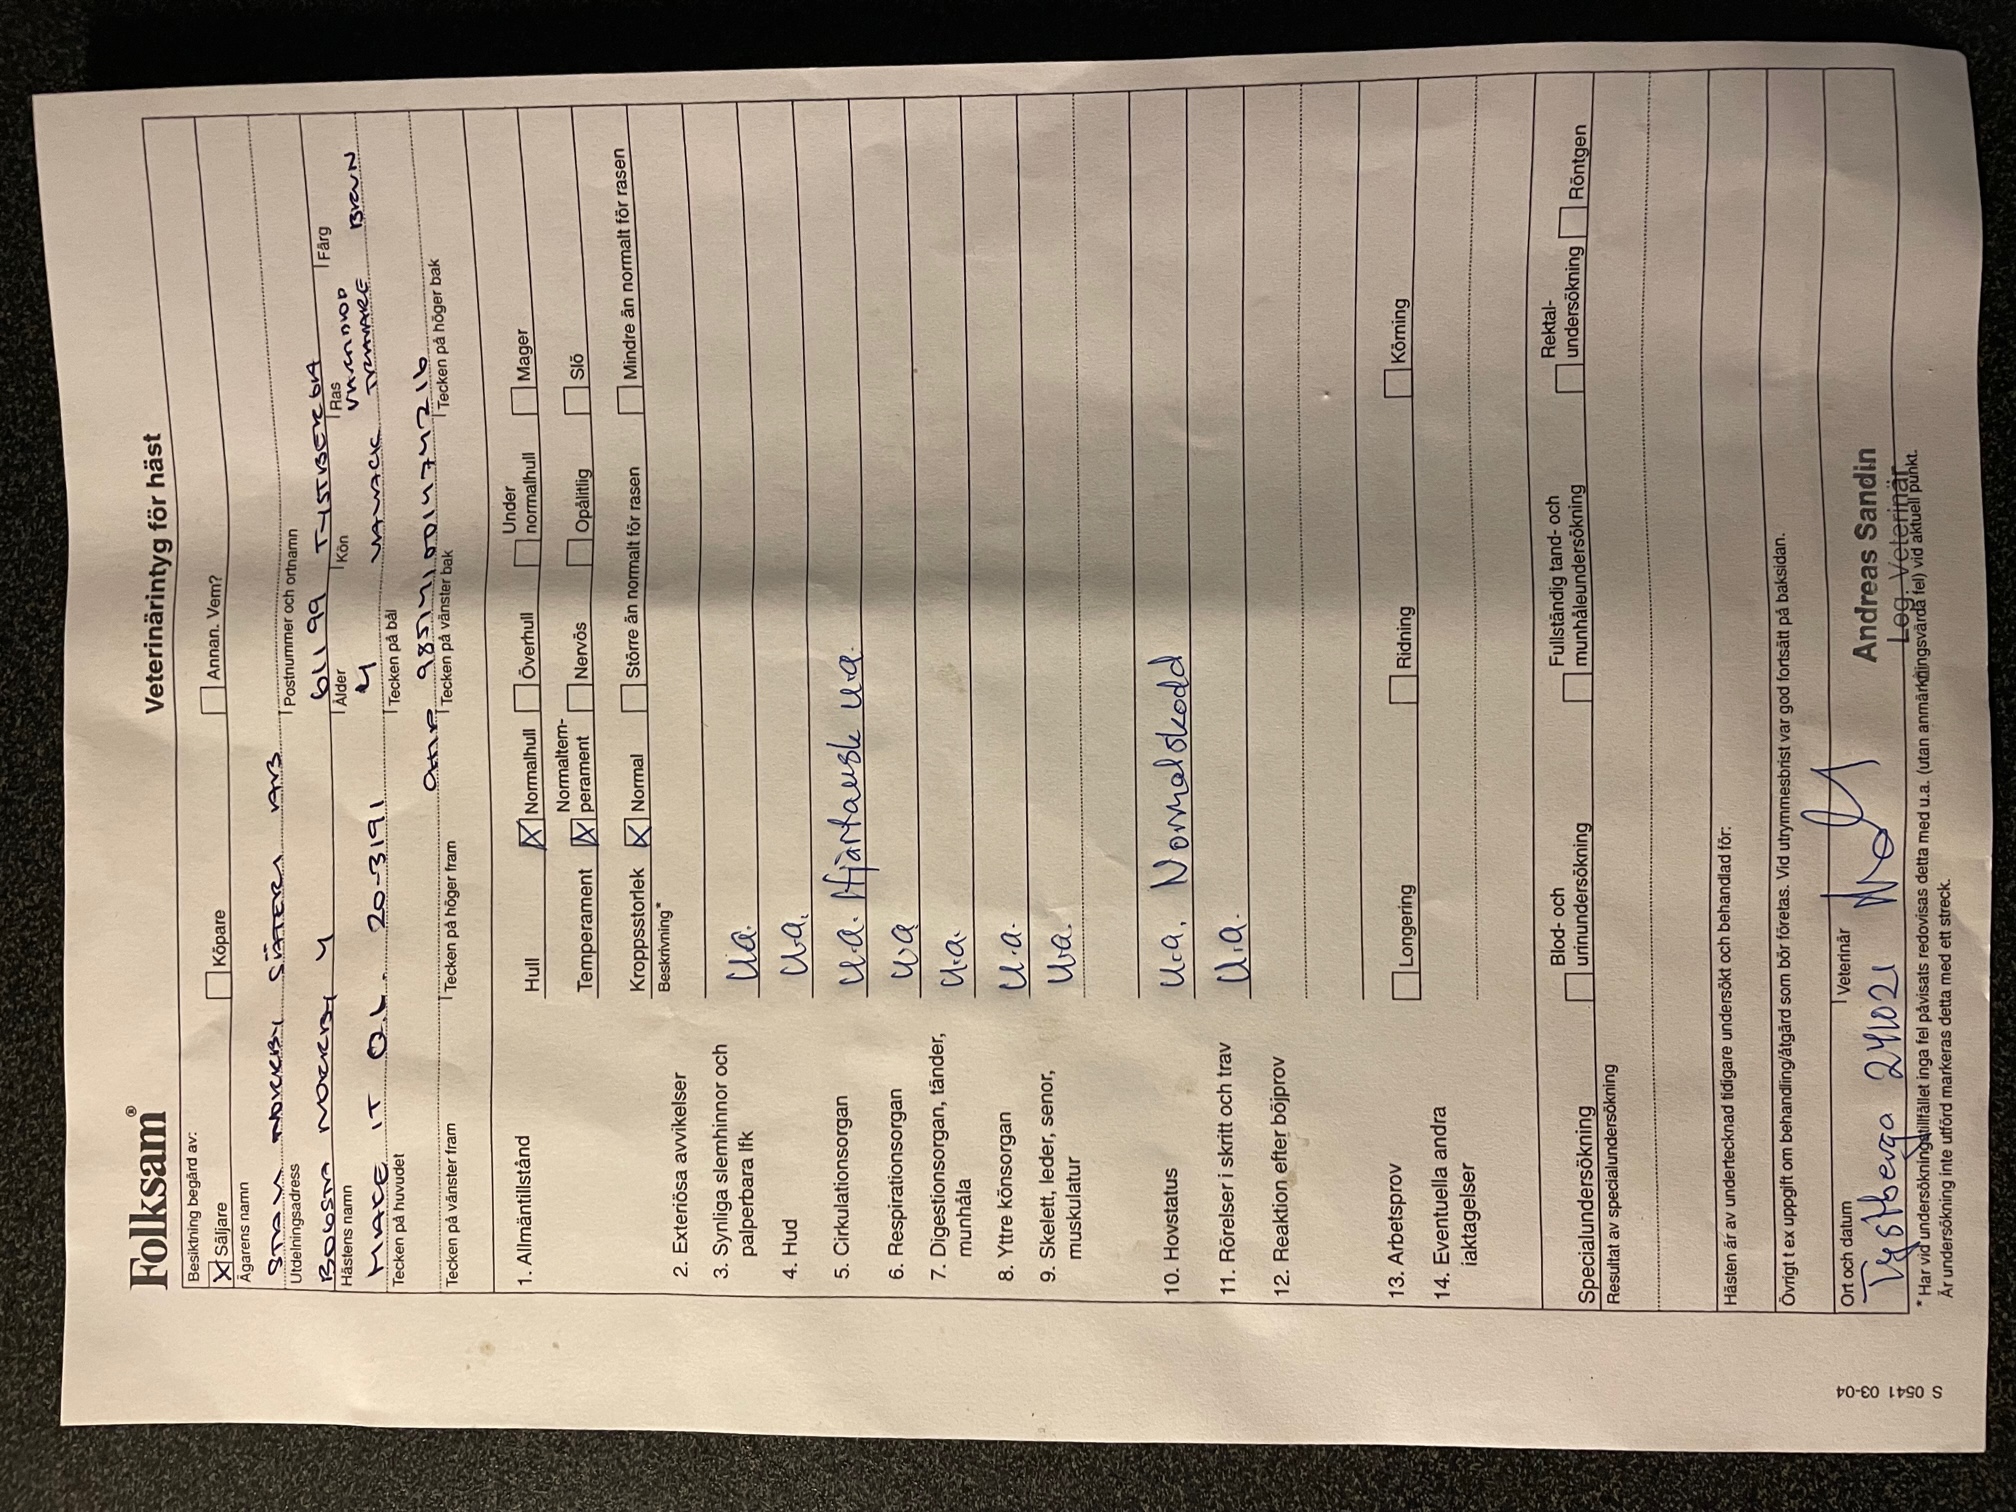 Folksam®
Veterinärintyg för häst
Besiktning begärd av:
X Säljare Köpare Annan. Vem?
Ägarens namn
STALL NORRBY SÄTERI AB
Utdelningsadress Postnummer och ortnamn
NORRBY 4 611 99 TYSTBERGA
Hästens namn Ålder Kön Ras Färg
MAKE IT Q.L. 20-3191 4 VALACK VARMBLOD TRAVARE BRUN
Tecken på huvudet Tecken på bål
CHIP 985141001474216
Tecken på vänster fram Tecken på höger fram Tecken på vänster bak Tecken på höger bak
1. Allmäntillstånd Hull X Normalhull Överhull Under normalhull Mager
Temperament X Normaltem-perament Nervös Opålitlig Slö
Kroppsstorlek X Normal Större än normalt för rasen Mindre än normalt för rasen
Beskrivning*
2. Exteriösa avvikelser
3. Synliga slemhinnor och u.a.
palperbara lfk
4. Hud u.a.
5. Cirkulationsorgan u.a. Hjärtausk u.a.
6. Respirationsorgan u.a
7. Digestionsorgan, tänder, u.a.
munhåla
8. Yttre könsorgan u.a.
9. Skelett, leder, senor, u.a.
muskulatur
10. Hovstatus u.a. Normalskodd
11. Rörelser i skritt och trav u.a.
12. Reaktion efter böjprov
13. Arbetsprov Longering Ridning Körning
14. Eventuella andra
iaktagelser
Specialundersökning Blod- och urinundersökning Fullständig tand- och munhåleundersökning Rektal-undersökning Röntgen
Resultat av specialundersökning
Hästen är av undertecknad tidigare undersökt och behandlad för:
Övrigt t ex uppgift om behandling/åtgärd som bör företas. Vid utrymmesbrist var god fortsätt på baksidan.
Ort och datum Veterinär
Tystberga 241021 Andreas Sandin
Leg. Veterinär
* Har vid undersökningstillfället inga fel påvisats redovisas detta med u.a. (utan anmärkningsvärda fel) vid aktuell punkt.
Är undersökning inte utförd markeras detta med ett streck.
S 0541 03-04